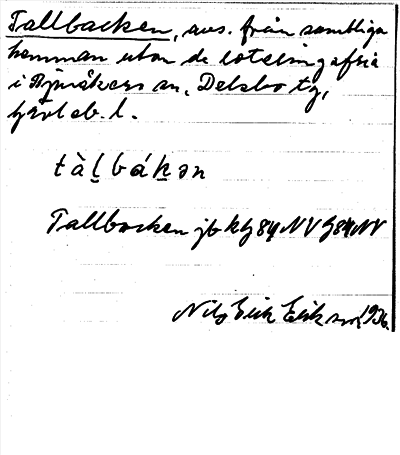 Tallbacken, avs. från samtliga
hemman utom de roteringsfria
i Bjuråkers sn, Delsbo tg,
Gävleb. l.
tàḻbáḵən
Tallbacken jb kbl 84 NV G84NV
Nils Erik Eriksson 1936.